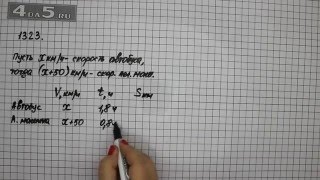 4DA5.RU
1323.
Пусть x км/ч - скорость автобуса,
тогда (x+50) км/ч - скор. лег. маш.
V, км/ч t, ч S, км
Автобус x 1,8 ч
А. машина x+50 0,8